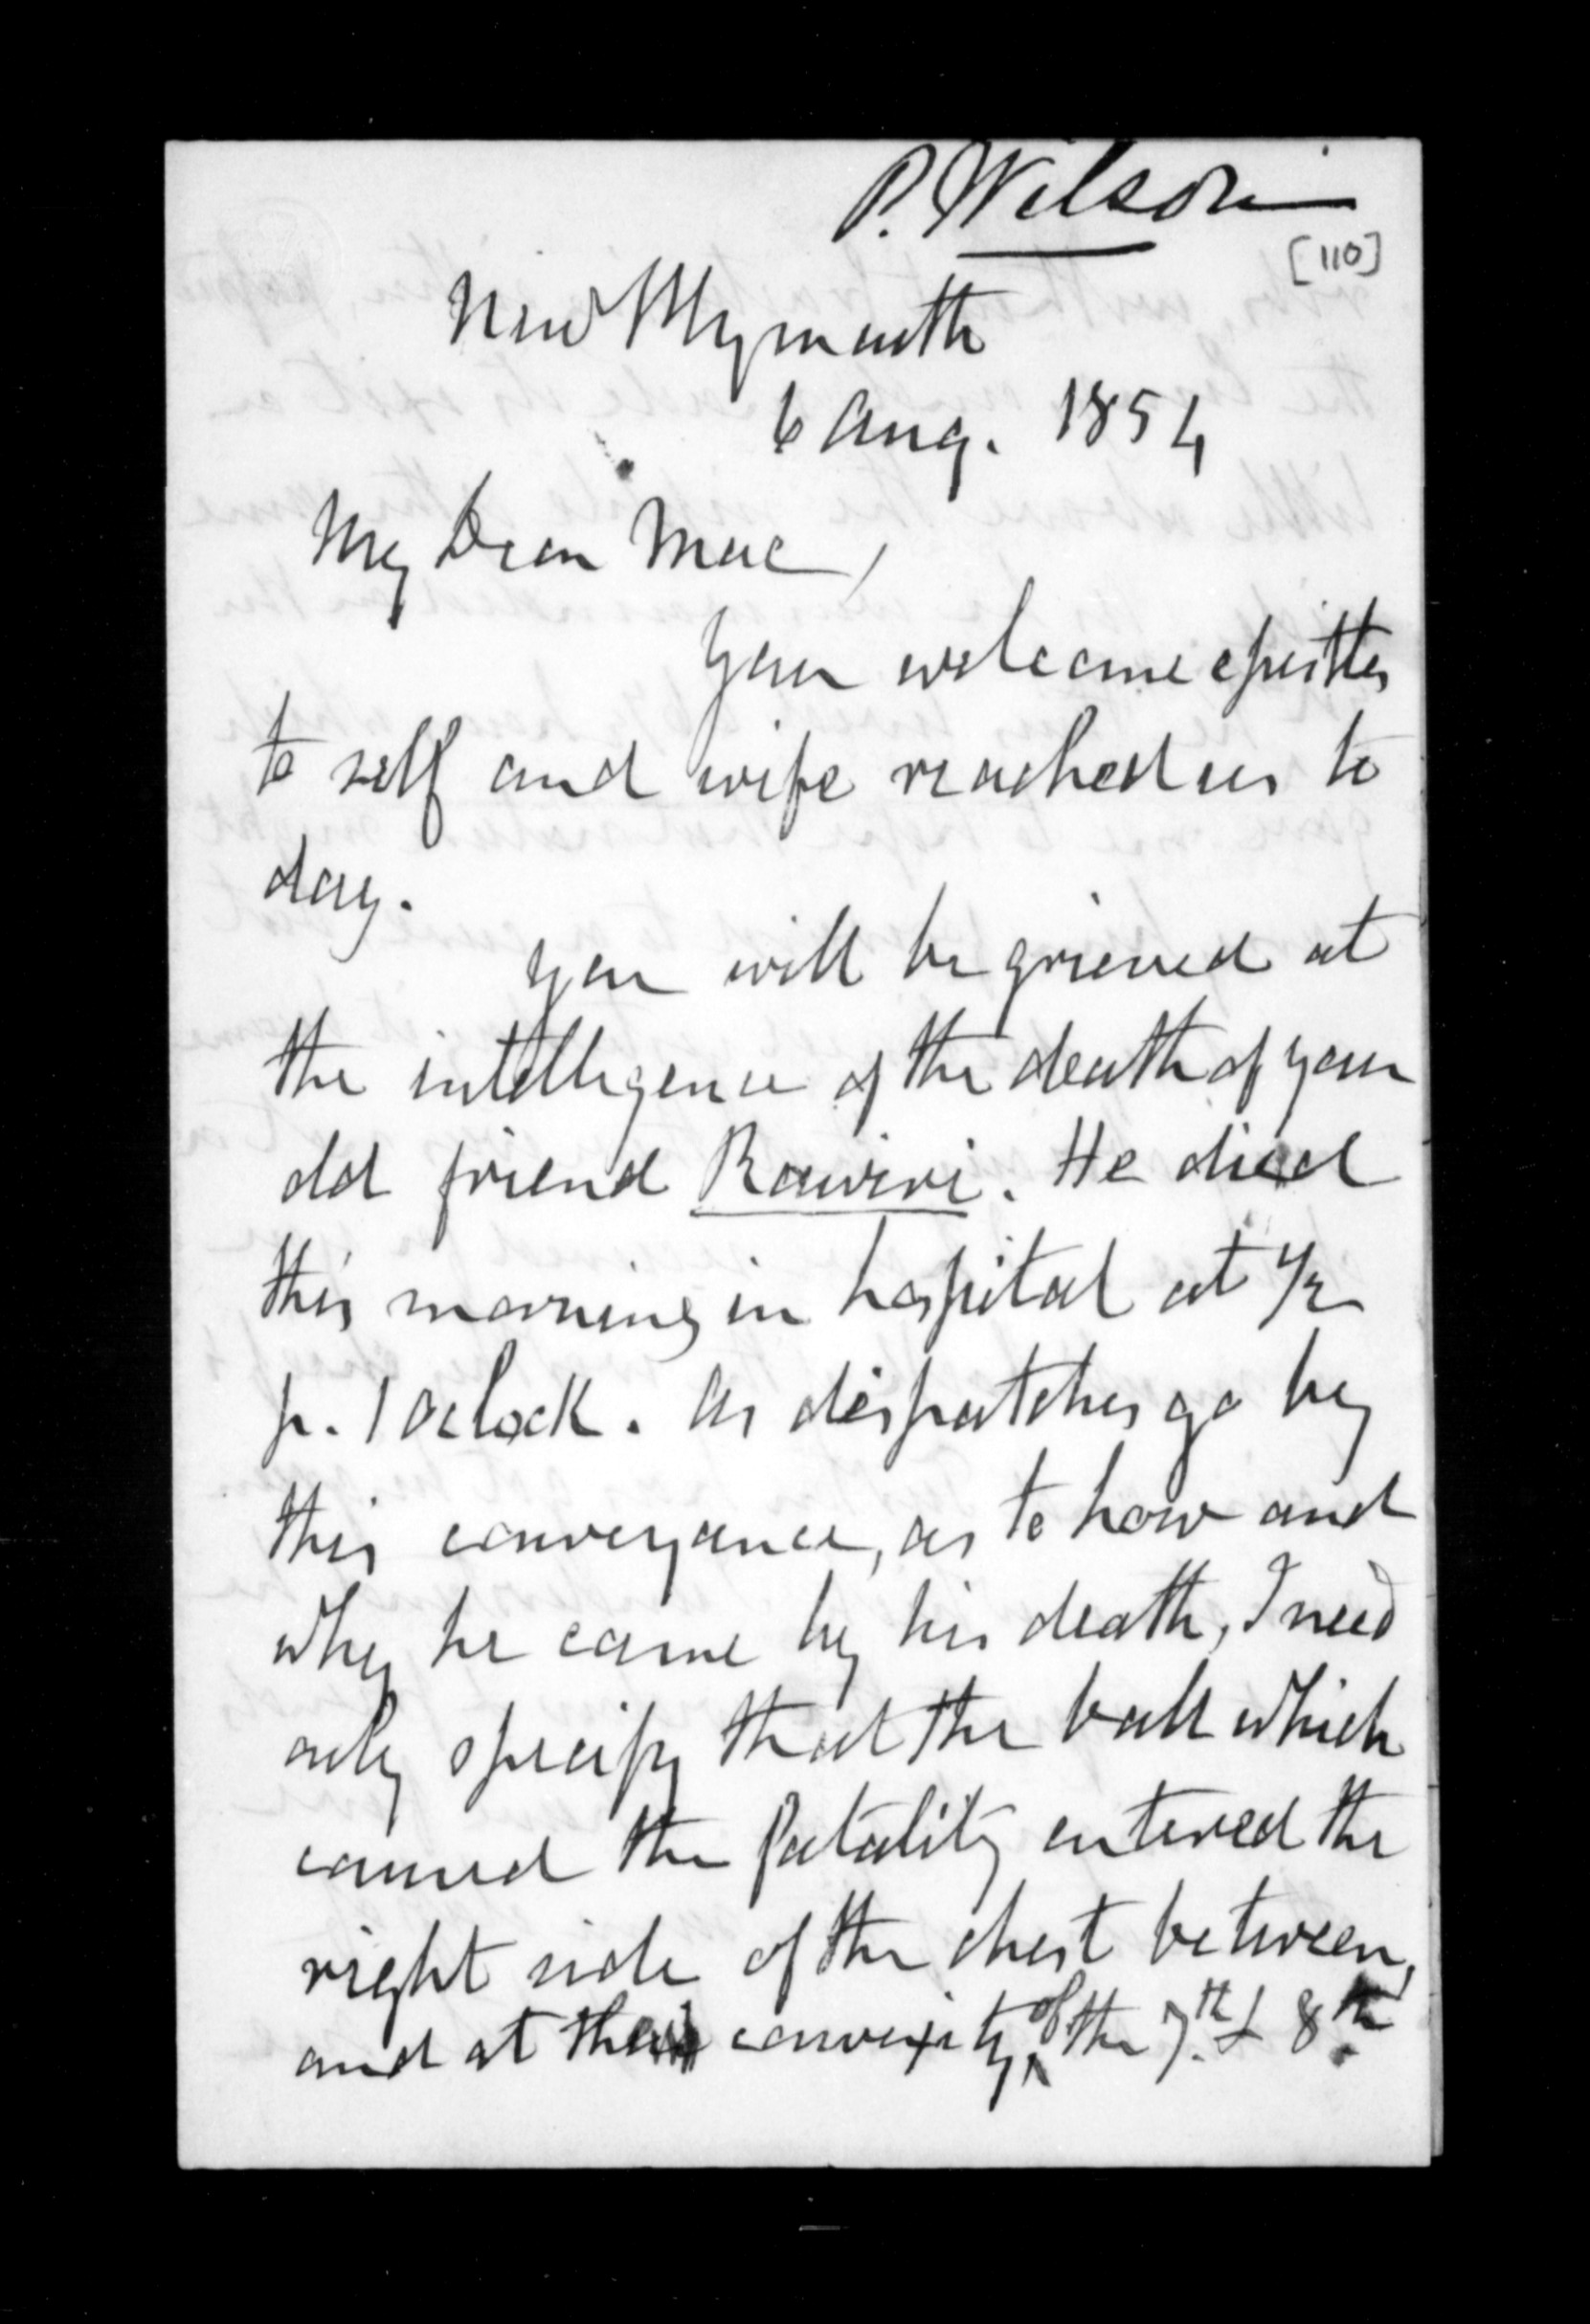 P. Wilson
[110]
New Plymouth
6 Aug. 1854
My Dear Mac,
Your welcome epistles
to self and wife reached us to
day.
You will be grieved at
the intelligence of the death of your
old friend Rawiri. He died
this morning in hospital at 1/2
p. 1 Oclock. As dispatches go by
this conveyance, as to how and
why he came by his death, I need
only specify that the ball which
caused the fatality entered the
right side of the chest between,
and at the convexity of the 7th. & 8th.